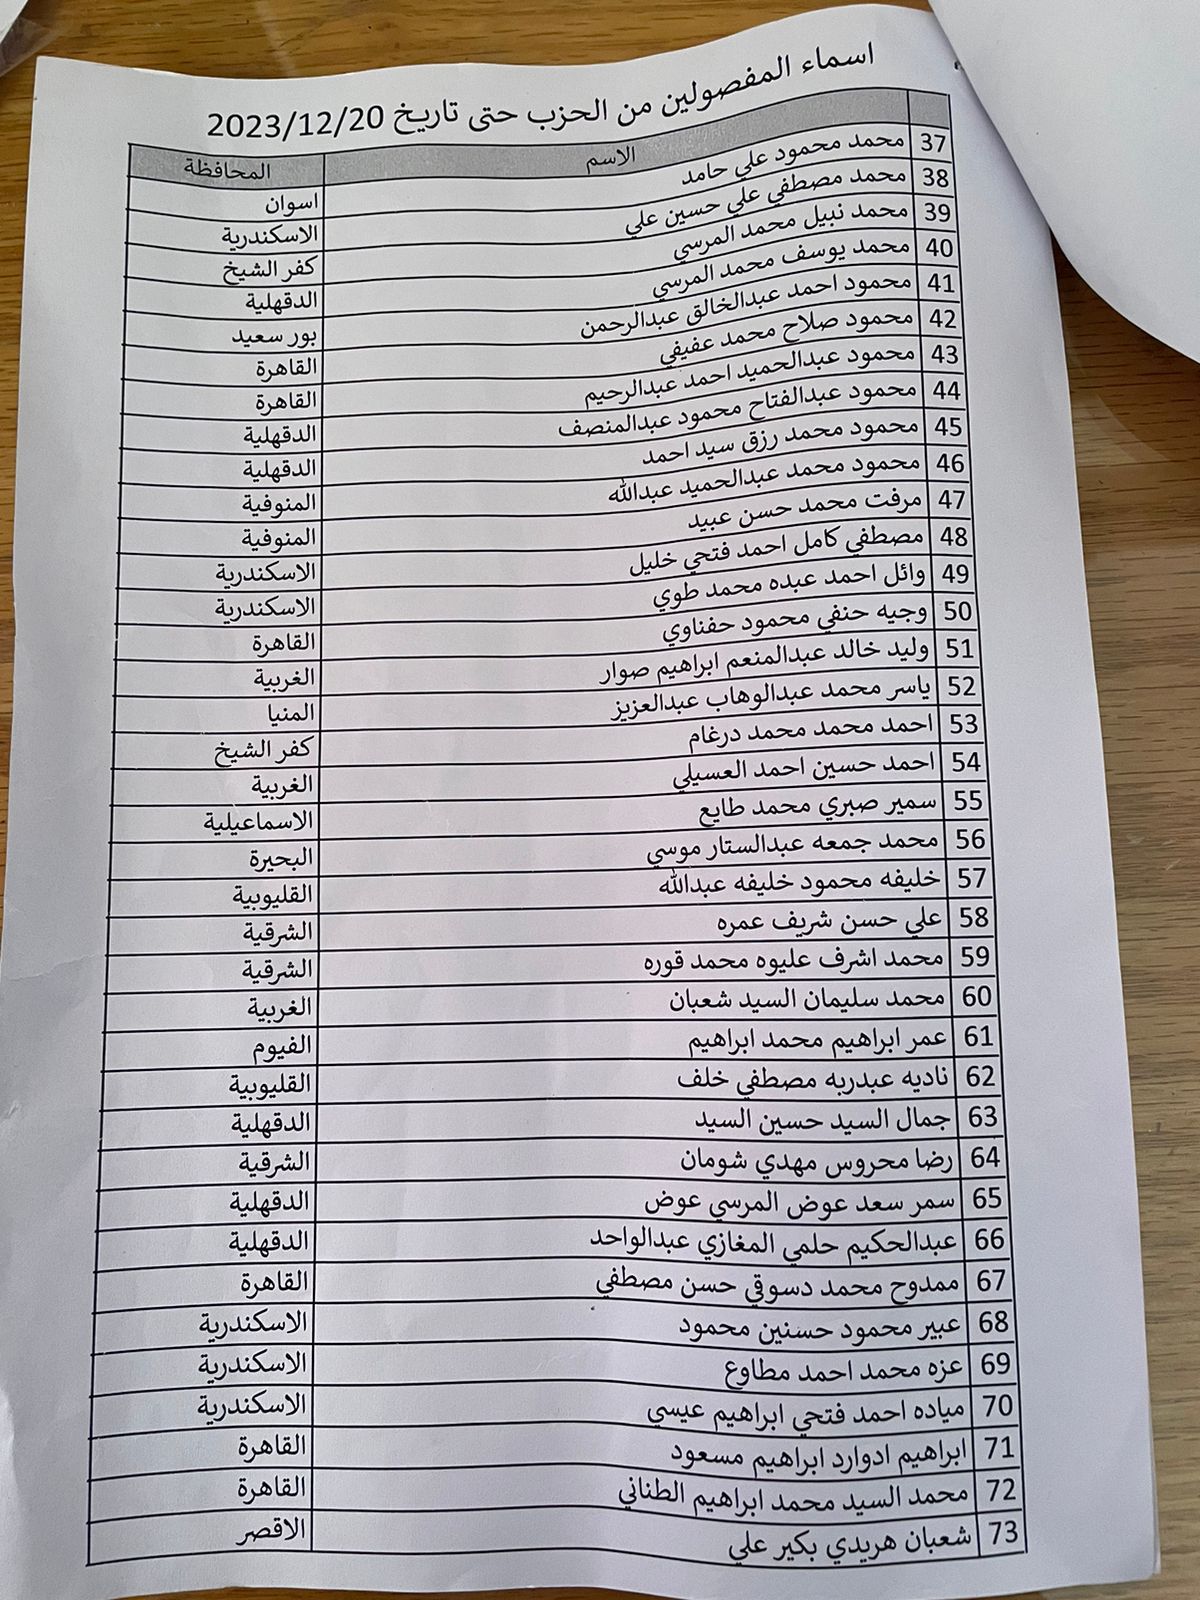 اسماء المفصولين من الحزب حتى تاريخ 2023/12/20
الاسم المحافظة
37 محمد محمود علي حامد اسوان
38 محمد مصطفي علي حسين علي الاسكندرية
39 محمد نبيل محمد المرسي كفر الشيخ
40 محمد يوسف محمد المرسي الدقهلية
41 محمود احمد عبدالخالق عبدالرحمن بور سعيد
42 محمود صلاح محمد عفيفي القاهرة
43 محمود عبدالحميد احمد عبدالرحيم القاهرة
44 محمود عبدالفتاح محمود عبدالمنصف الدقهلية
45 محمود محمد رزق سيد احمد الدقهلية
46 محمود محمد عبدالحميد عبدالله المنوفية
47 مرفت محمد حسن عبيد المنوفية
48 مصطفي كامل احمد فتحي خليل الاسكندرية
49 وائل احمد عبده محمد طوي الاسكندرية
50 وجيه حنفي محمود حفناوي القاهرة
51 وليد خالد عبدالمنعم ابراهيم صوار الغربية
52 ياسر محمد عبدالوهاب عبدالعزيز المنيا
53 احمد محمد محمد درغام كفر الشيخ
54 احمد حسين احمد العسيلي الغربية
55 سمير صبري محمد طايع الاسماعيلية
56 محمد جمعه عبدالستار موسي البحيرة
57 خليفه محمود خليفه عبدالله القليوبية
58 علي حسن شريف عمره الشرقية
59 محمد اشرف عليوه محمد قوره الشرقية
60 محمد سليمان السيد شعبان الغربية
61 عمر ابراهيم محمد ابراهيم الفيوم
62 ناديه عبدربه مصطفي خلف القليوبية
63 جمال السيد حسين السيد الدقهلية
64 رضا محروس مهدي شومان الشرقية
65 سمر سعد عوض المرسي عوض الدقهلية
66 عبدالحكيم حلمي المغازي عبدالواحد الدقهلية
67 ممدوح محمد دسوقي حسن مصطفي القاهرة
68 عبير محمود حسنين محمود الاسكندرية
69 عزه محمد احمد مطاوع الاسكندرية
70 مياده احمد فتحي ابراهيم عيسي الاسكندرية
71 ابراهيم ادوارد ابراهيم مسعود القاهرة
72 محمد السيد محمد ابراهيم الطناني القاهرة
73 شعبان هريدي بكير علي الاقصر